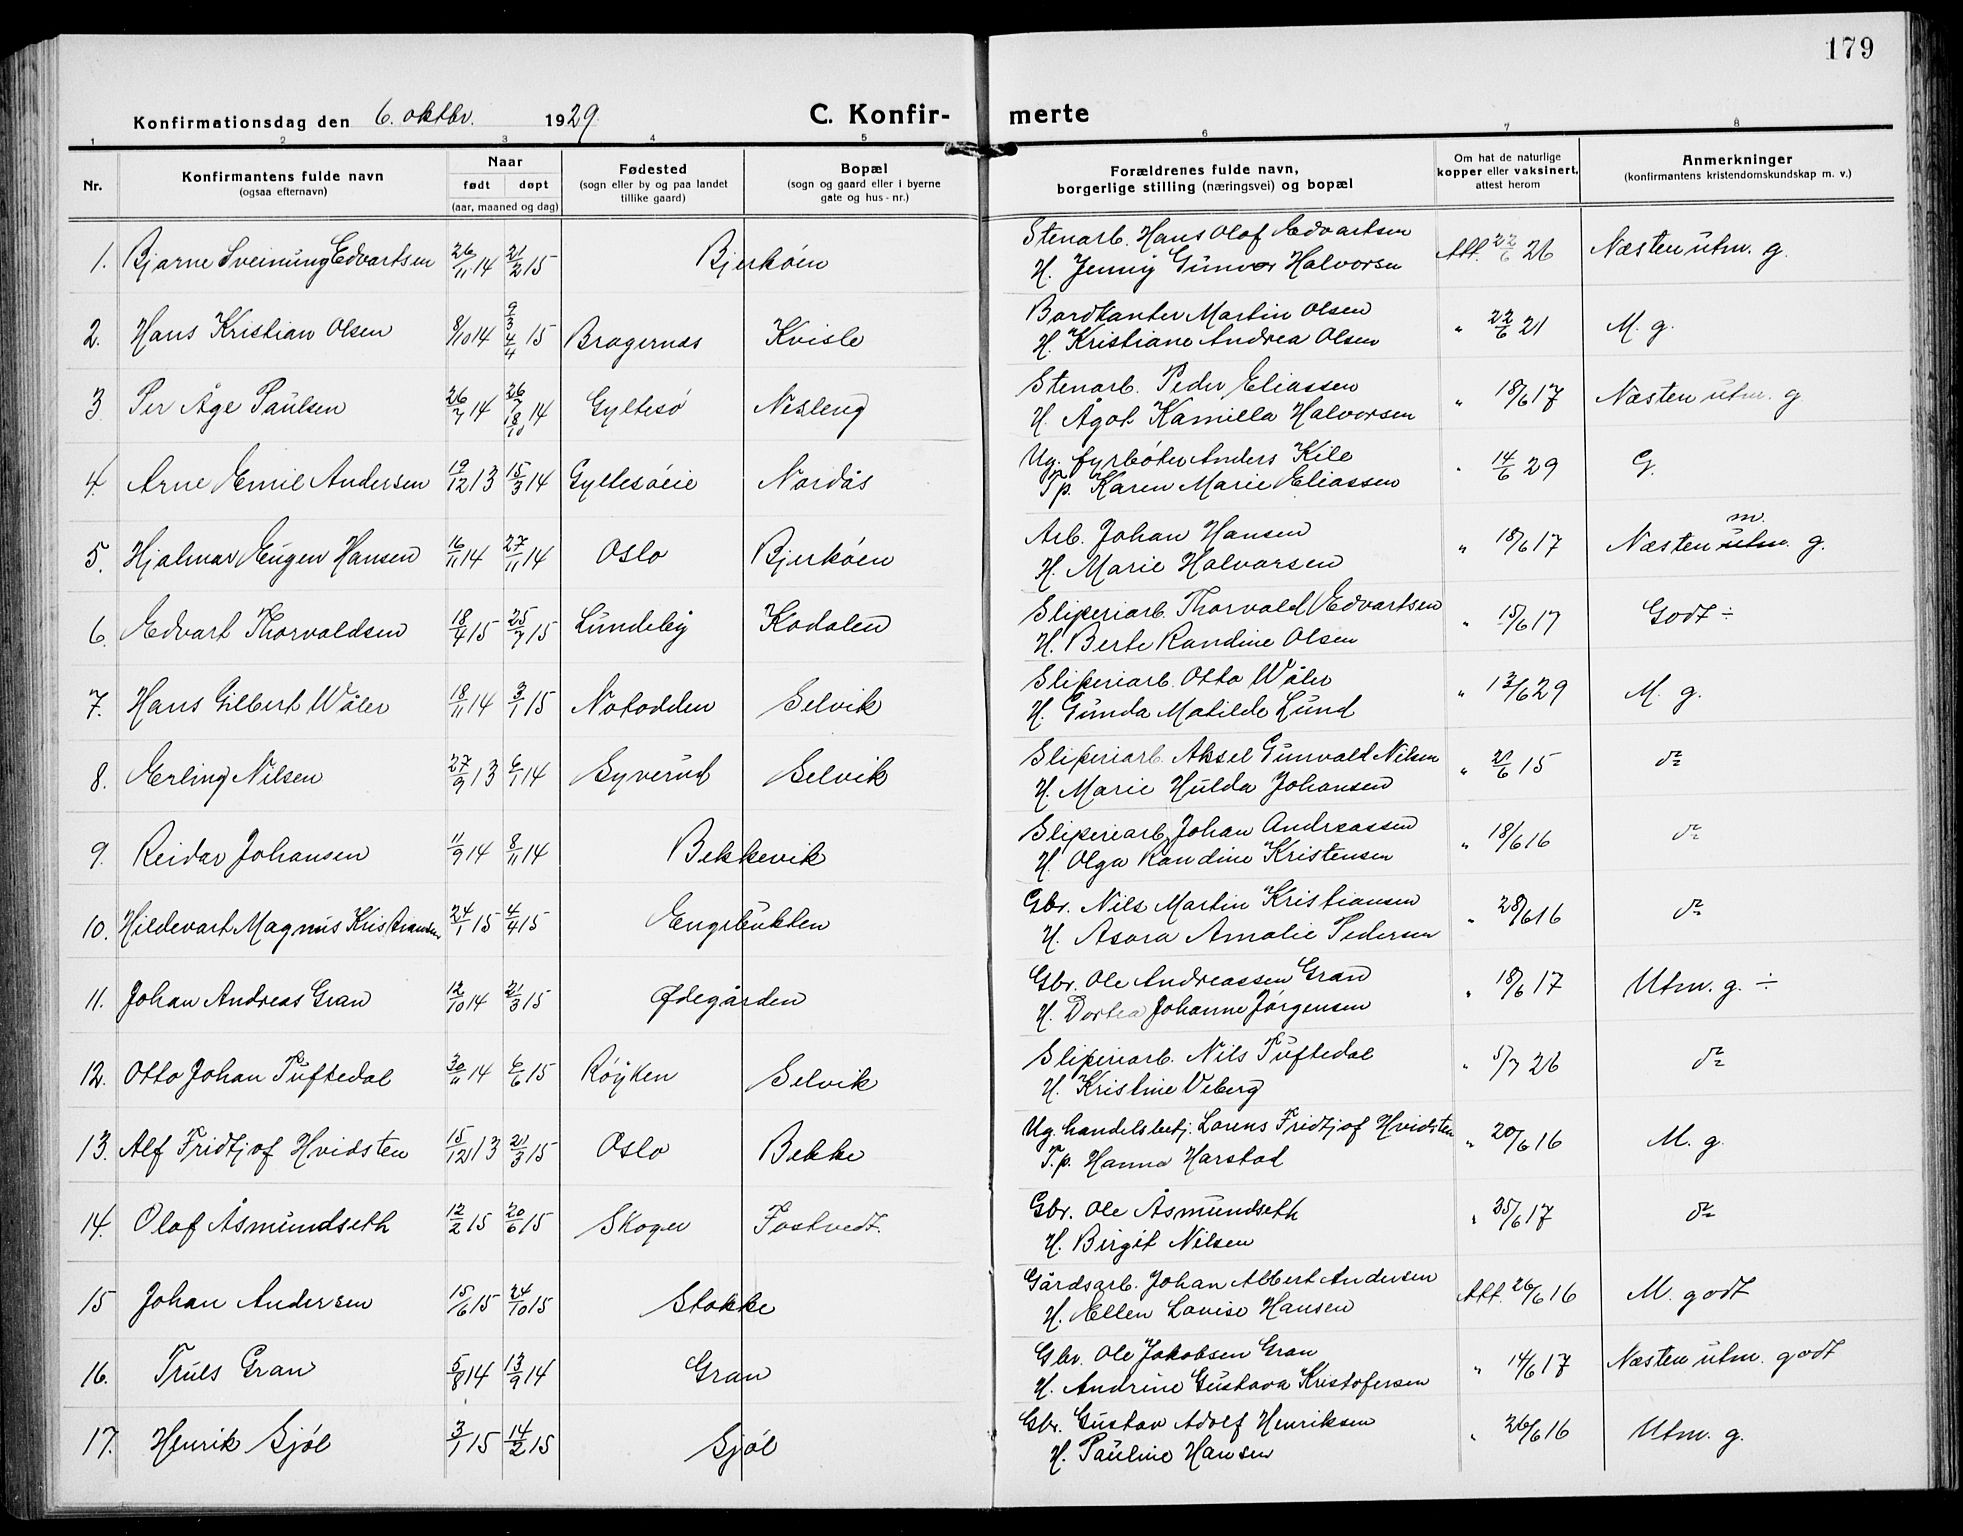 179
Konfirmationsdag den 6. oktbr. 1929
C. Konfir- merte
1 2 3 4 5 6 7 8
Nr.
Konfirmantens fulde navn
(ogsaa efternavn)
Naar
født døpt
(aar, maaned og dag)
Fødested
(sogn eller by og paa landet
tillike gaard)
Bopæl
(sogn og gaard eller i byerne
gate og hus-nr.)
Forældrenes fulde navn,
borgerlige stilling (næringsvei) og bopæl
Om hat de naturlige
kopper eller vaksinert,
attest herom
Anmerkninger
(konfirmantens kristendomskundskap m. v.)
1. Bjarne Sveinung Edvartsen 26/11 14 21/2 15 Bjerköen Stenarb. Hans Olof Edvartsen Att. 22/6 26 Næsten utm. g.
H. Jenny Gunvor Halvorsen
2. Hans Kristian Olsen 8/10 14 9/3 4/4 15 Bragernas Kvisle Bordkanter Martin Olsen " 22/6 21 M. g.
H. Kristiane Andrea Olsen
3 Per Åge Paulsen 26/7 14 26/7 18/10 14 Gyltesö Nesleng Stenarb. Peder Eliassen " 18/6 17 Næsten utm. g
H. Ågot Kamilla Halvorsen
4. Arne Emil Andersen 19/12 13 15/3 14 Gyltesöeie Nordås Ug. fyrböter Anders Kile " 14/6 29 G.
Tp. Karen Marie Eliassen
5. Hjalmar Eugen Hansen 16/11 14 27/11 14 Oslo Bjerköen Arb. Johan Hansen " 18/6 17 Næsten utm. m. g.
H. Marie Halvorsen
6. Edvart Thorvaldsen 18/4 15 25/7 15 Lundeby Kodalen Sliperiarb. Thorvald Edvartsen " 15/6 17 Godt ÷
H. Berte Randine Olsen
7. Hans Gilbert Wåler 18/11 14 3/1 15 Notodden Selvik Sliperiarb. Otto Wåler " 13/6 29 M. g.
H. Gunda Matilde Lund
8. Erling Nilsen 27/9 13 6/1 14 Syverud Selvik Sliperiarb. Aksel Gunvald Nilsen " 21/6 15 do
H. Marie Hulda Johansen
9. Reidar Johansen 11/9 14 8/11 14 Bekkevik Sliperiarb. Johan Andreassen " 18/6 16 do
H. Olga Randine Kristensen
10. Hildevart Magnus Kristiansen 24/1 15 4/4 15 Engebukten Gbr. Nils Martin Kristiansen " 28/6 16 do
H. Asora Amalie Pedersen
11. Johan Andreas Gran 12/10 14 21/3 15 Ødegården Gbr. Ole Andreassen Gran " 18/6 17 Utm. g. ÷
H. Dortea Johanne Jörgensen
12. Otto Johan Tuftedal 30/11 14 6/6 15 Röyken Selvik Sliperiarb. Nils Tuftedal " 5/7 26 do
H. Kristine Viberg
13. Alf Fridtjof Hvidsten 15/12 13 21/3 15 Oslo Bekke Ug. handelsbetj. Lorens Fridtjof Hvidsten " 20/6 16 M. g.
T.p. Hanna Harstad
14. Olaf Åsmundseth 12/2 15 20/6 15 Skoger Fostvedt. Gbr. Ole Åsmundseth " 25/6 17 do
H. Birgit Nilsen
15 Johan Andersen 15/6 15 24/10 15 Stokke Gårdsarb. Johan Albert Andersen Att. 26/6 16 M. godt
H. Ellen Lovise Hansen
16. Truls Gran 5/8 14 13/9 14 Gran Gbr. Ole Jakobsen Gran " 14/6 17 Næsten utm. godt
H. Andrine Gustava Kristofersen
17. Henrik Sjöl 3/1 15 14/2 15 Sjöl Gbr. Gustav Adolf Henriksen " 26/6 16 Utm. g.
H. Pauline Hansen